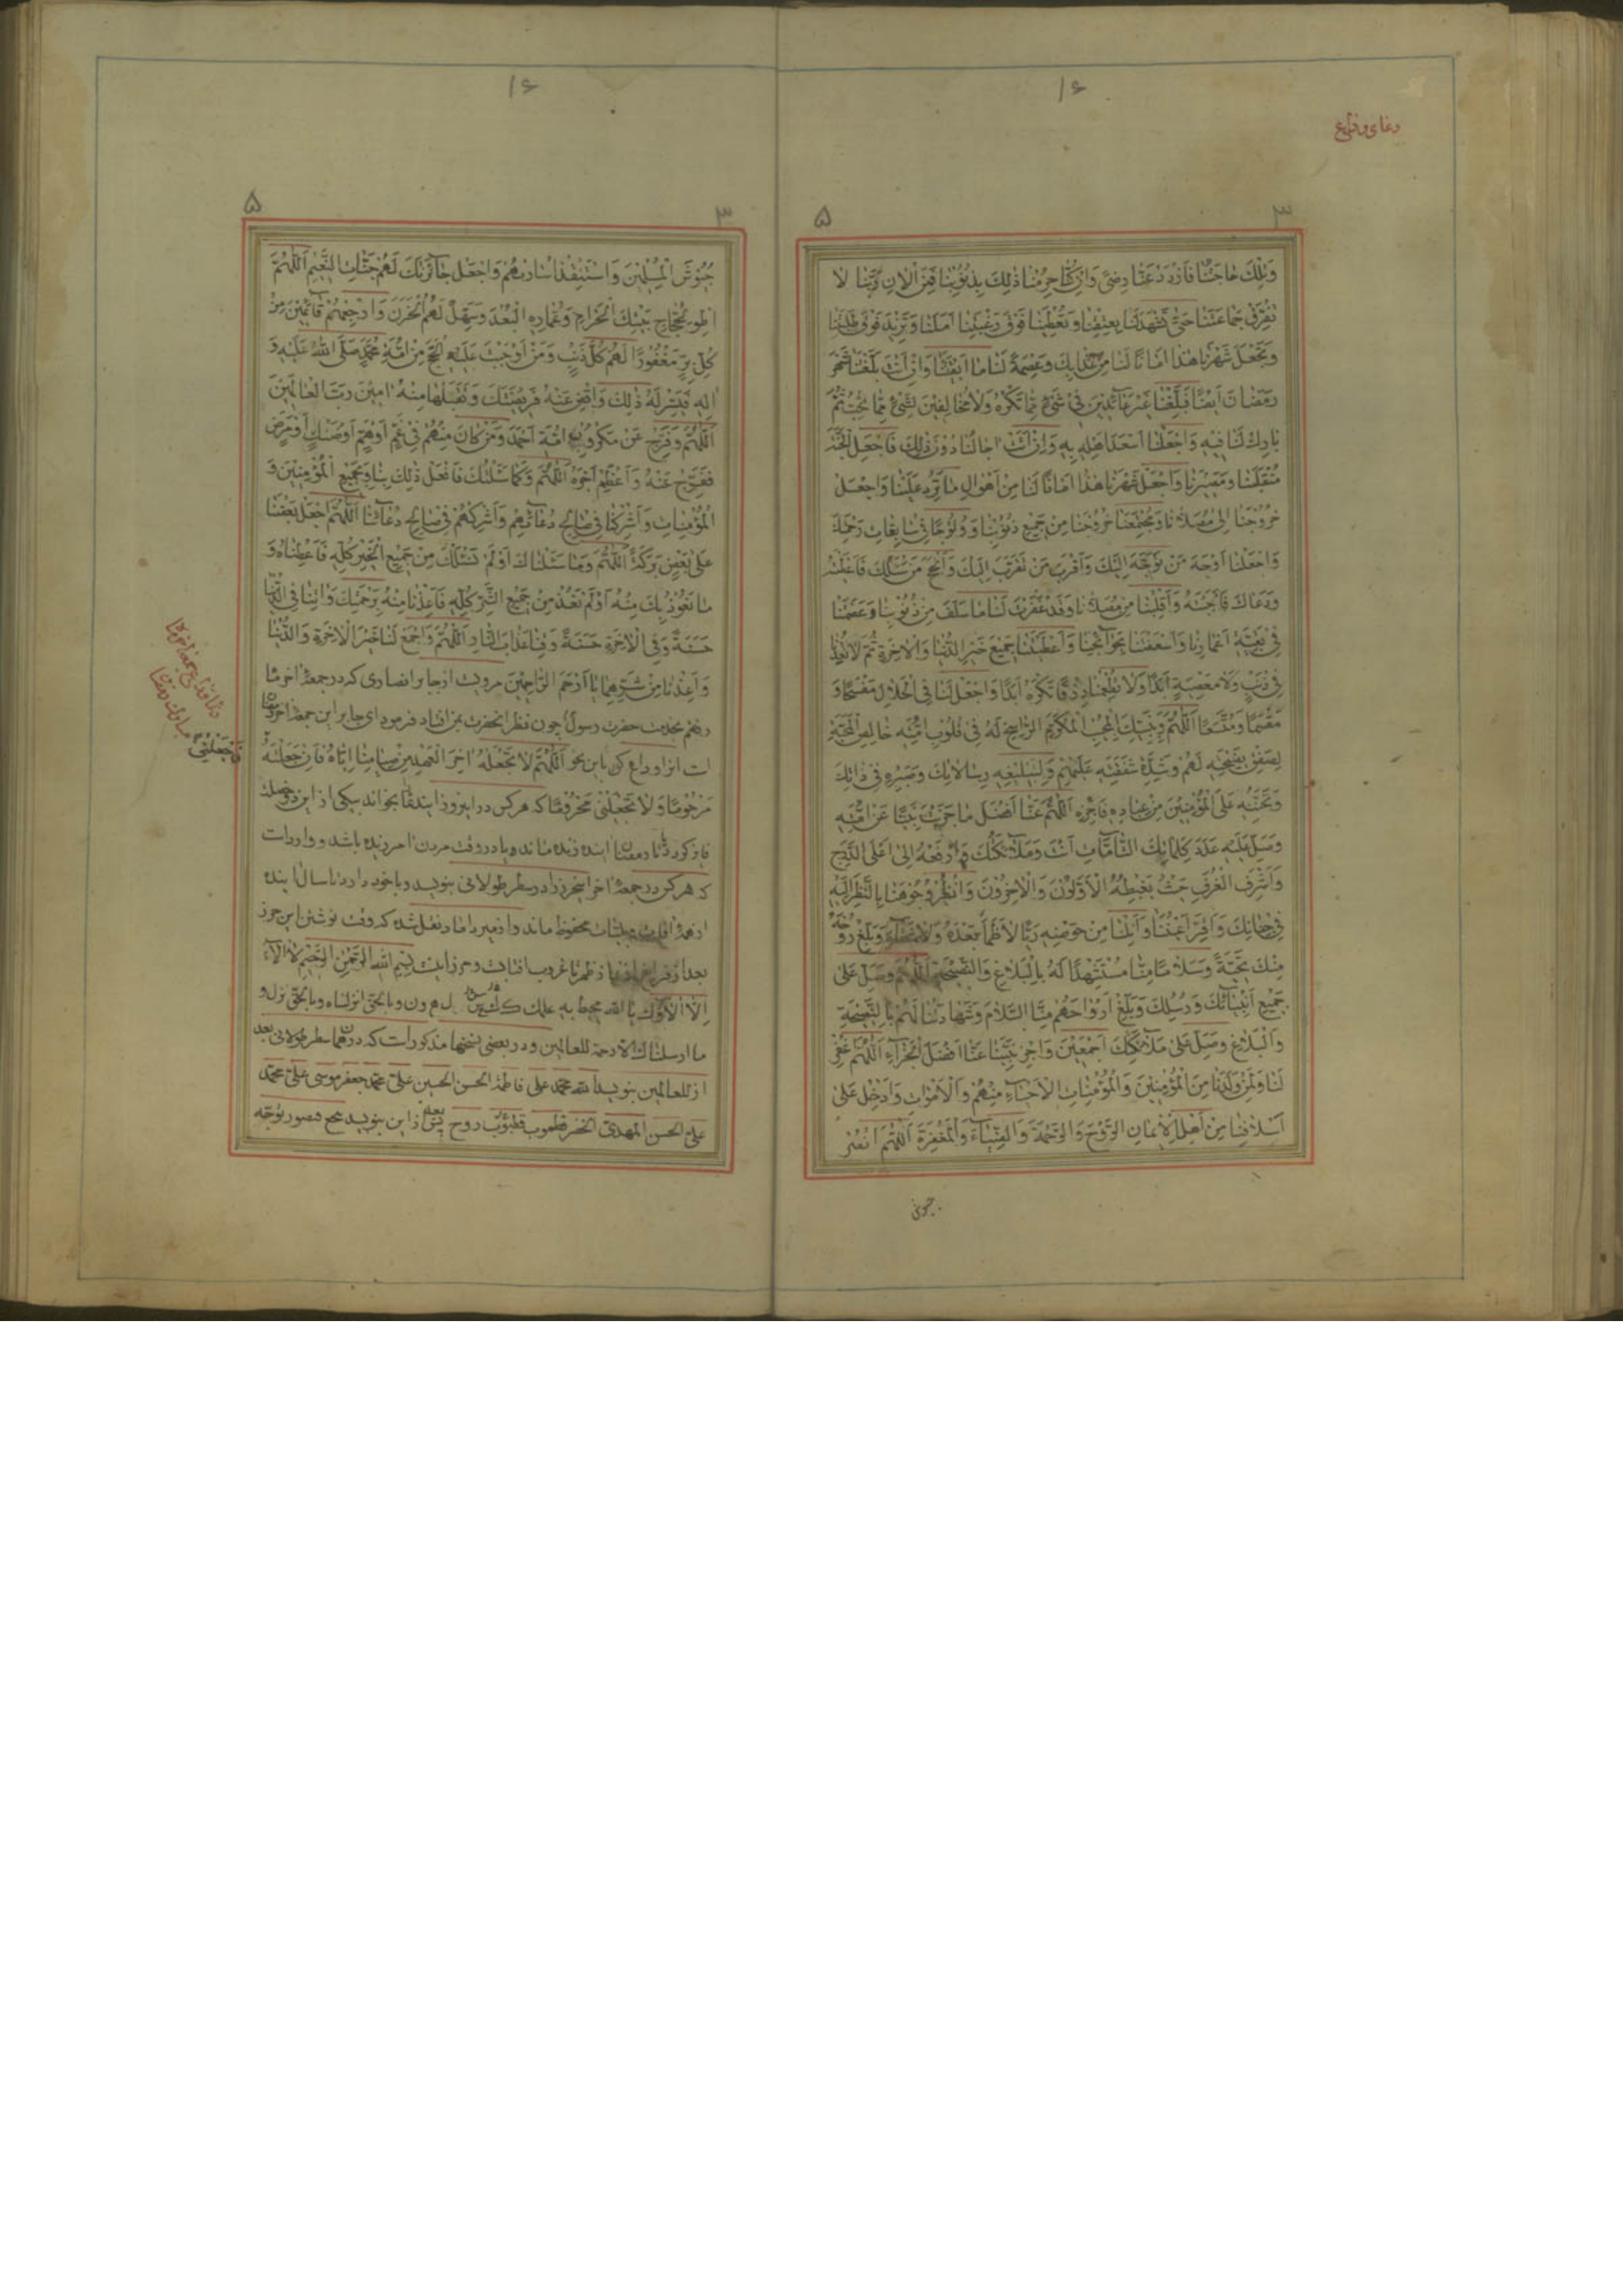 ۱۶
دعای وداع
۵
۳
وَتِلْكَ حَاجَتُنَا فَازْدَدْ عَنَّا رِضًى وَاِنْ كُنَّا حُرِمْنَا ذٰلِكَ بِذُنُوبِنَا فَمِنَ الْاٰنِ رَبَّنَا لَا
تُفَرِّقْ جَمَاعَتَنَا حَتّٰى تَشْهَدَ لَنَا بِعِتْقِنَا وَتُعْطِيَنَا فَوْقَ رَغْبَتِنَا اَمَلَنَا وَتَزِيدَ فَوْقَ طَلِبَتِنَا
وَتَجْعَلَ شَهْرَنَا هٰذَا اَمَانًا لَنَا مِنْ عَذَابِكَ وَعِصْمَةً لَنَا مَا اَبْقَيْتَنَا وَاِنْ اَنْتَ بَلَّغْتَنَا شَهْرَ
رَمَضَانَ اَيْضًا فَبَلِّغْنَا غَيْرَ عَائِدِينَ فِي شَيْءٍ مِمَّا تَكْرَهُ وَلَا مُخَالِفِينَ لِشَيْءٍ مِمَّا تُحِبُّ ثُمَّ
بَارِكْ لَنَا فِيهِ وَاجْعَلْنَا اَسْعَدَ اَهْلِهِ بِهِ وَاِنْ اَتَتْ اٰجَالُنَا دُونَ ذٰلِكَ فَاجْعَلِ الْجَنَّةَ
مُنْقَلَبَنَا وَمَصِيرَنَا وَاجْعَلْ شَهْرَنَا هٰذَا اَمَانًا لَنَا مِنْ اَهْوَالِ مَا نَرِدُ عَلَيْنَا وَاجْعَلْ
خُرُوجَنَا اِلٰى مُصَلَّانَا وَمُجْتَمَعِنَا خُرُوجَنَا مِنْ جَمِيعِ ذُنُوبِنَا وَوُلُوجًا فِي سَابِغَاتِ رَحْمَتِكَ
وَاجْعَلْنَا اَوْجَهَ مَنْ تَوَجَّهَ اِلَيْكَ وَاَقْرَبَ مَنْ تَقَرَّبَ اِلَيْكَ وَاَنْجَحَ مَنْ سَئَلَكَ فَاَعْطَيْتَهُ
وَدَعَاكَ فَاَجَبْتَهُ وَاَقْلِبْنَا مِنْ مُصَلَّانَا وَقَدْ غَفَرْتَ لَنَا مَا سَلَفَ مِنْ ذُنُوبِنَا وَعَصَمْتَنَا
فِي بَقِيَّةِ اَعْمَارِنَا وَاَسْعَفْتَنَا بِحَوَائِجِنَا وَاَعْطَيْتَنَا جَمِيعَ خَيْرِ الدُّنْيَا وَالْاٰخِرَةِ ثُمَّ لَا تُعِدْنَا
فِي ذَنْبٍ وَلَا مَعْصِيَةٍ اَبَدًا وَلَا تُطْعِمْنَا رِزْقًا تَكْرَهُهُ اَبَدًا وَاجْعَلْ لَنَا فِي الْحَلَالِ مَفْسَحًا وَ
مُتَّسَعًا اَللّٰهُمَّ وَنَبِيُّكَ الْمُكَرَّمُ الرَّاسِخُ لَهُ فِي قُلُوبِ اُمَّتِهِ خَالِصُ الْمَحَبَّةِ
لِصَفْوِ نَصِيحَتِهِ لَهُمْ وَشِدَّةِ شَفَقَتِهِ عَلَيْهِمْ وَلِتَبْلِيغِهِ رِسَالَاتِكَ وَصَبْرِهِ فِي ذَاتِكَ
وَتَحَنُّنِهِ عَلَى الْمُؤْمِنِينَ مِنْ عِبَادِهِ فَاجْزِهِ اَللّٰهُمَّ عَنَّا اَفْضَلَ مَا جَزَيْتَ نَبِيًّا عَنْ اُمَّتِهِ
وَصَلِّ عَلَيْهِ عَدَدَ كَلِمَاتِكَ التَّامَّاتِ اَنْتَ وَمَلَائِكَتُكَ وَارْفَعْهُ اِلٰى اَعْلَى الدَّرَجِ
وَاَشْرَفِ الْغُرَفِ حَيْثُ يَغْبِطُهُ الْاَوَّلُونَ وَالْاٰخِرُونَ وَانْضُرْ وُجُوهَنَا بِالنَّظَرِ اِلَيْهِ
فِي جِنَانِكَ وَاَقِرَّ اَعْيُنَنَا وَاَنِلْنَا مِنْ حَوْضِهِ رَيًّا لَا ظَمَأَ بَعْدَهُ وَلَا شَقَاءَ وَبَلِّغْ رُوحَهُ
مِنْكَ تَحِيَّةً وَسَلَامًا مِنَّا مُسْتَشْهِدًا لَهُ بِالْبَلَاغِ وَالنَّصِيحَةِ اَللّٰهُمَّ وَصَلِّ عَلٰى
جَمِيعِ اَنْبِيَائِكَ وَرُسُلِكَ وَبَلِّغْ اَرْوَاحَهُمْ مِنَّا السَّلَامَ وَشَهَادَتَنَا لَهُمْ بِالنَّصِيحَةِ
وَالْبَلَاغِ وَصَلِّ عَلٰى مَلَائِكَتِكَ اَجْمَعِينَ وَاجْزِ نَبِيَّنَا عَنَّا اَفْضَلَ الْجَزَاءِ اَللّٰهُمَّ اغْفِرْ
لَنَا وَلِمَنْ وَلَدَنَا مِنَ الْمُؤْمِنِينَ وَالْمُؤْمِنَاتِ الْاَحْيَاءِ مِنْهُمْ وَالْاَمْوَاتِ وَاَدْخِلْ عَلٰى
اَسْلَافِنَا مِنْ اَهْلِ الْاِيمَانِ الرَّوْحَ وَالرَّحْمَةَ وَالضِّيَاءَ وَالْمَغْفِرَةَ اَللّٰهُمَّ انْصُرْ
جیوش
۱۶
۵
۳
جُيُوشَ الْمُسْلِمِينَ وَاسْتَنْقِذْ اُسَارَاهُمْ وَاجْعَلْ جَائِزَتَكَ لَهُمْ جَنَّاتِ النَّعِيمِ اَللّٰهُمَّ
اطْوِ لِحُجَّاجِ بَيْتِكَ الْحَرَامِ وَعُمَّارِهِ الْبُعْدَ وَسَهِّلْ لَهُمُ الْحَزَنَ وَارْجِعْهُمْ غَانِمِينَ مِنْ
كُلِّ بِرٍّ مَغْفُورًا لَهُمْ كُلُّ ذَنْبٍ وَمَنْ اَوْجَبْتَ عَلَيْهِ الْحَجَّ مِنْ اُمَّةِ مُحَمَّدٍ صَلَّى اللهُ عَلَيْهِ وَ
اٰلِهِ فَيَسِّرْ لَهُ ذٰلِكَ وَاقْضِ عَنْهُ فَرِيضَتَكَ وَتَقَبَّلْهَا مِنْهُ اٰمِينَ رَبَّ الْعَالَمِينَ
اَللّٰهُمَّ وَفَرِّجْ عَنْ مَكْرُوبِي اُمَّةِ اَحْمَدَ وَمَنْ كَانَ مِنْهُمْ فِي غَمٍّ اَوْ هَمٍّ اَوْ ضَنْكٍ اَوْ مَرَضٍ
فَفَرِّجْ عَنْهُ وَاَعْظِمْ اَجْرَهُ اَللّٰهُمَّ وَكَمَا سَئَلْتُكَ فَافْعَلْ ذٰلِكَ بِنَا وَبِجَمِيعِ الْمُؤْمِنِينَ وَ
الْمُؤْمِنَاتِ وَاَشْرِكْنَا فِي صَالِحِ دُعَائِهِمْ وَاَشْرِكْهُمْ فِي صَالِحِ دُعَائِنَا اَللّٰهُمَّ اجْعَلْ بَعْضَنَا
عَلٰى بَعْضٍ بَرَكَةً اَللّٰهُمَّ وَمَا سَئَلْنَاكَ اَوْ لَمْ نَسْئَلْكَ مِنْ جَمِيعِ الْخَيْرِ كُلِّهِ فَاَعْطِنَاهُ وَ
مَا نَعُوذُ بِكَ مِنْهُ اَوْ لَمْ نَعُذْ مِنْ جَمِيعِ الشَّرِّ كُلِّهِ فَاَعِذْنَا مِنْهُ بِرَحْمَتِكَ وَاٰتِنَا فِي الدُّنْيَا
حَسَنَةً وَفِي الْاٰخِرَةِ حَسَنَةً وَقِنَا عَذَابَ النَّارِ اَللّٰهُمَّ وَاجْمَعْ لَنَا خَيْرَ الْاٰخِرَةِ وَالدُّنْيَا
وَاَعِذْنَا مِنْ شَرِّهِمَا يَا اَرْحَمَ الرَّاحِمِينَ مرویست از جابر انصاری که در جمعهٔ اخر ماه
رفتم بخدمت حضرت رسول چون نظر انحضرت بمن افتاد فرمود ای جابر این جمعهٔ اخر رمضان
است انرا وداع کن باین نحو اَللّٰهُمَّ لَا تَجْعَلْهُ اٰخِرَ الْعَهْدِ مِنْ صِيَامِنَا اِيَّاهُ فَاِنْ جَعَلْتَهُ
فَاجْعَلْنِي
مَرْحُومًا وَلَا تَجْعَلْنِي مَحْرُومًا که هر کس در این روز ایندعا بخواند بیکی از این دو خصلت
فایز گردد تا رمضان اینده زنده ماند و یا در وقت مردن امرزیده باشد و وارد است
که هر کس در جمعهٔ اخر اینحرز را در سطر طولانی بنویسد و با خود دارد تا سال اینده
از همهٔ افات و بلیّات محفوظ ماند و از میر داماد نقل شده که وقت نوشتن این حرز
بعد از فراغ از نماز ظهر تا غروب افتاب است و حرز اینست بِسْمِ اللهِ الرَّحْمٰنِ الرَّحِيمِ لَا اٰلَاءَ
اِلَّا اٰلَاؤُكَ يَا اللهُ محیط به علمك کعسلهون وبالحق انزلناه وبالحق نزل و
ما ارسلناك الا رحمة للعالمین و در بعضی نسخها مذکور است که در همان سطر طولانی بعد
از للعالمین بنویسد الله محمد علی فاطمة الحسن الحسین علی محمد جعفر موسی علی محمد
علی الحسن المهدی
دعای وداع جمعهٔ اخر ماه
مبارك رمضان